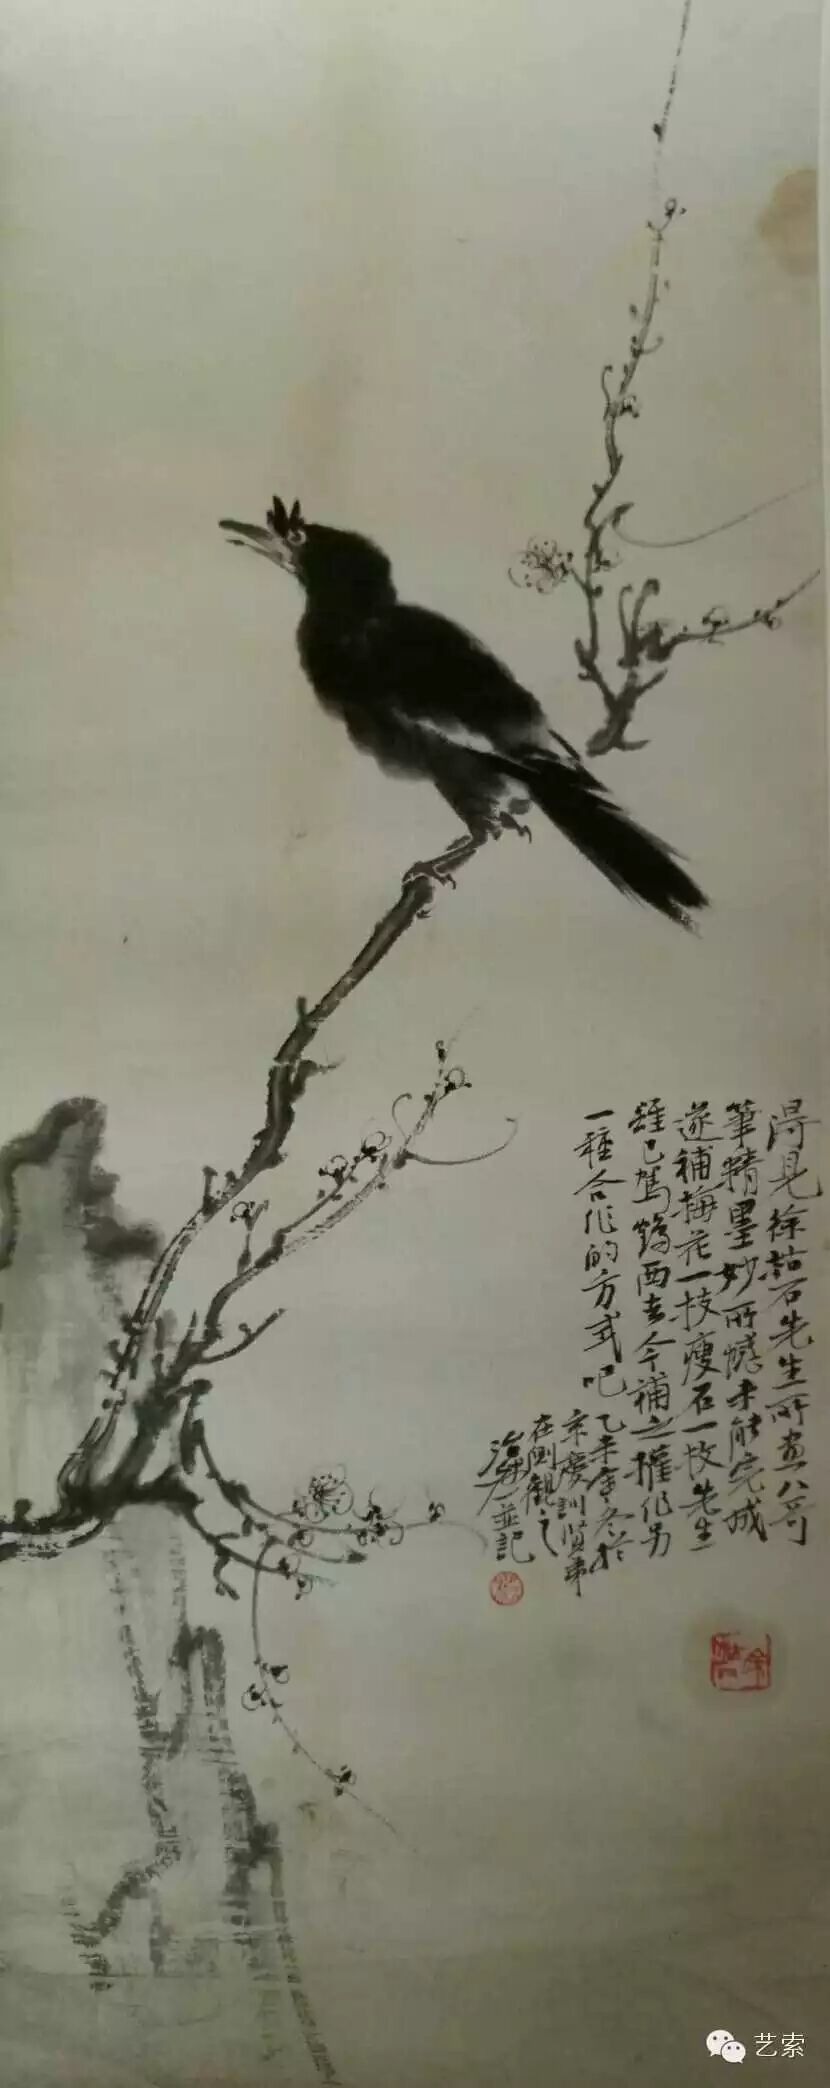 得見徐枯石先生所畫八哥
筆精墨妙所憾未能完成
遂補梅花一枝瘦石一枚先生
雖已駕鶴西去今補之權作另
一種合作的方式吧
乙未年冬於
京慶訓賢弟
在側觀之
並記
艺索